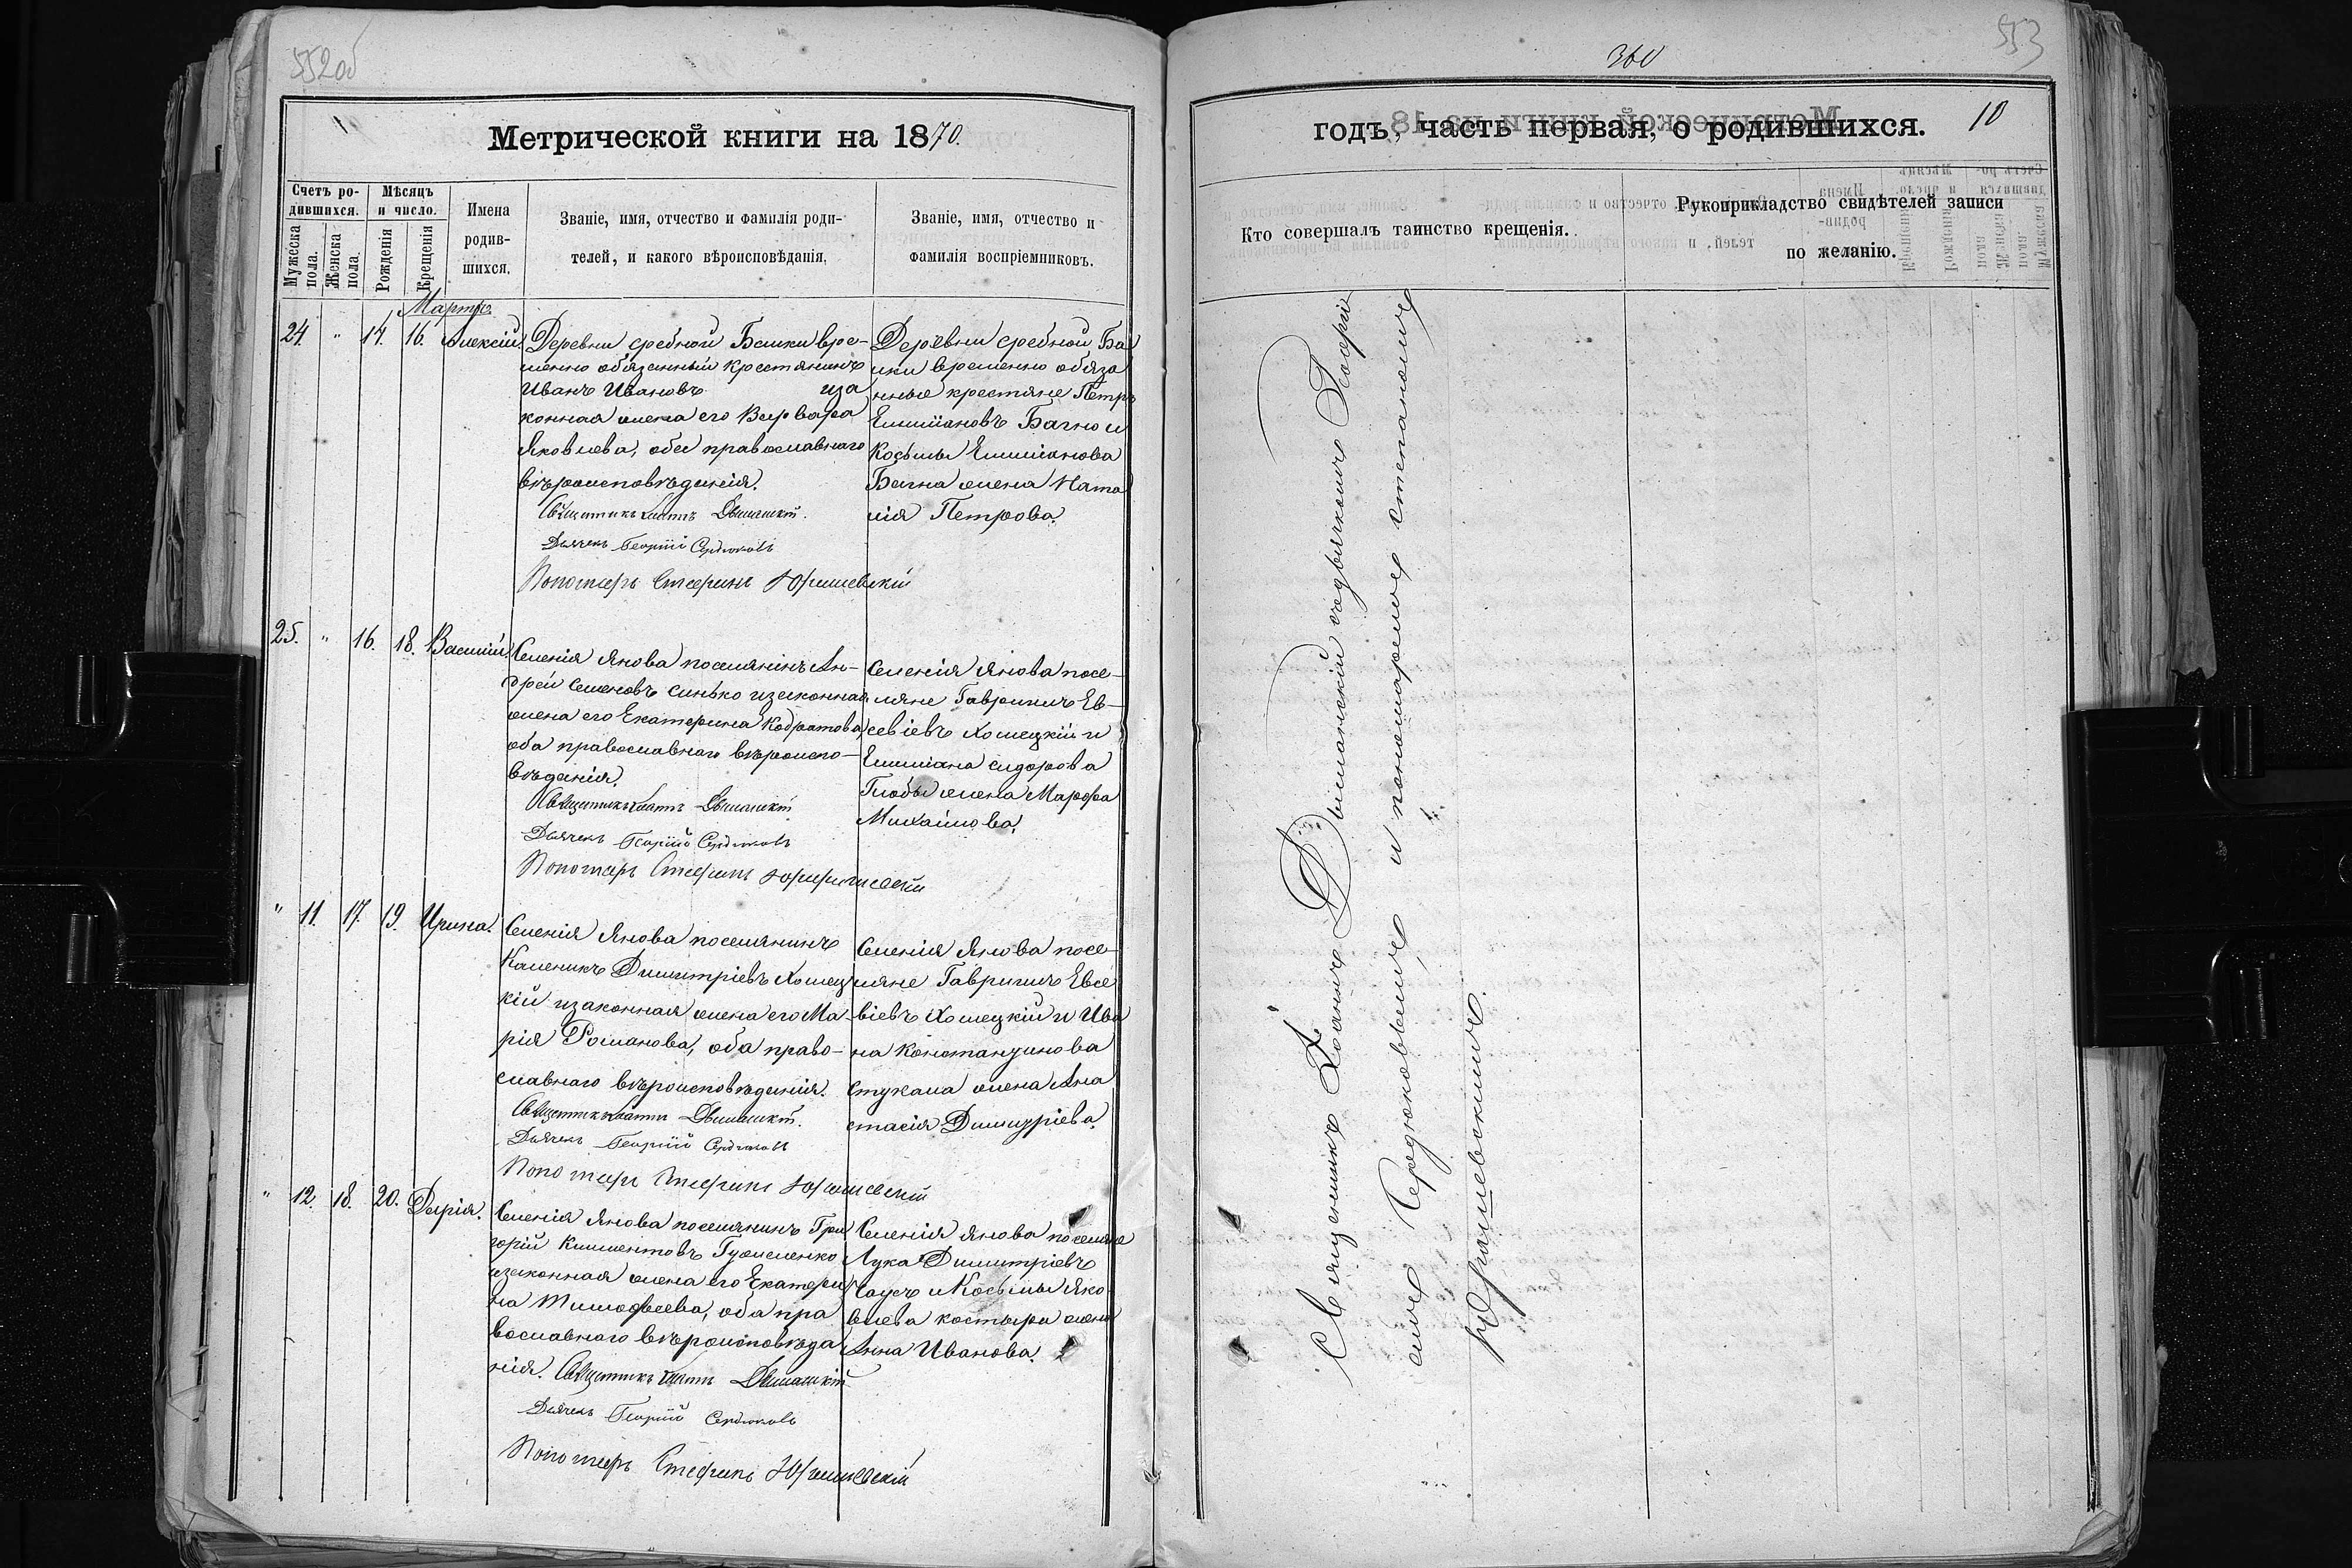 552об
Метрической книги на 1870.
Счетъ ро-
дившихся.
Мужеска пола.
Женска пола.
Мѣсяцъ
и число.
Рожденія
Крещенія
Имена
родив-
шихся.
Званіе, имя, отчество и фамилія роди-
телей, и какого вѣроисповѣданія.
Званіе, имя, отчество и
фамилія воспріемниковъ.
Мартъ
24. " 14. 16. Алексій.
Деревни средной Балки вре-
менно обязанный крестянинъ
Иванъ Ивановъ иза
конная жена его Варвара
Яковлева, оба православнаго
вѣроисповѣданія.
Священникъ Іоаннъ
Дьячекъ Георгій Сердюковъ
Пономарь Стефанъ Юрашевскій
Деревни средной Ба
лки временно обяза
нные крестяне Петръ
Емиліановъ Багно и
Косьмы Емиліанова
Багна жена Ната
лія Петрова.
25. " 16. 18. Василій.
Селенія Янова поселянинъ Ан-
дрей Семеновъ Синько изаконная
жена его Екатерина Кодратова,
оба православнаго вѣроиспо-
вѣданія.
Священникъ Іоаннъ
Дьячекъ Георгій Сердюковъ
Пономарь Стефанъ Юрашевскій
Селенія Янова посе-
ляне Гавриилъ Ев-
севіевъ Хомецкій и
Емиліана Сидорова
Глобы жена Марфа
Михайлова.
" 11. 17. 19. Ирина.
Селенія Янова поселянинъ
Каленикъ Димитріевъ Хомец
кій изаконная жена его Ма-
рія Романова, оба право-
славнаго вѣроисповѣданія.
Священникъ Іоаннъ
Дьячекъ Георгій Сердюковъ
Пономарь Стефанъ Юрашевскій
Селенія Янова посе-
ляне Гавриилъ Евсе
віевъ Хомецкій и Ива
на Константинова
Стукала жена Ана
стасія Димитріева.
" 12. 18. 20. Дарія.
Селенія Янова поселянинъ Гри
горій Климентовъ Гужеленко
изаконная жена его Екатери
на Тимофѣева, оба пра
вославнаго вѣроисповѣда
нія. Священникъ Іоаннъ
Дьячекъ Георгій Сердюковъ
Пономарь Стефанъ Юрашевскій
Селенія Янова поселяне
Лука Димитріевъ
Чаусъ и Косьмы Яко
влева Костыри жена
Анна Иванова.
360
553
годъ, часть первая, о родившихся. 10
Кто совершалъ таинство крещенія.
Рукоприкладство свидѣтелей записи
по желанію.
Священникъ Іоаннъ съдьячкомъ Георгі
емъ Сердюковымъ и пономаремъ Степаномъ
Юрашевскимъ.